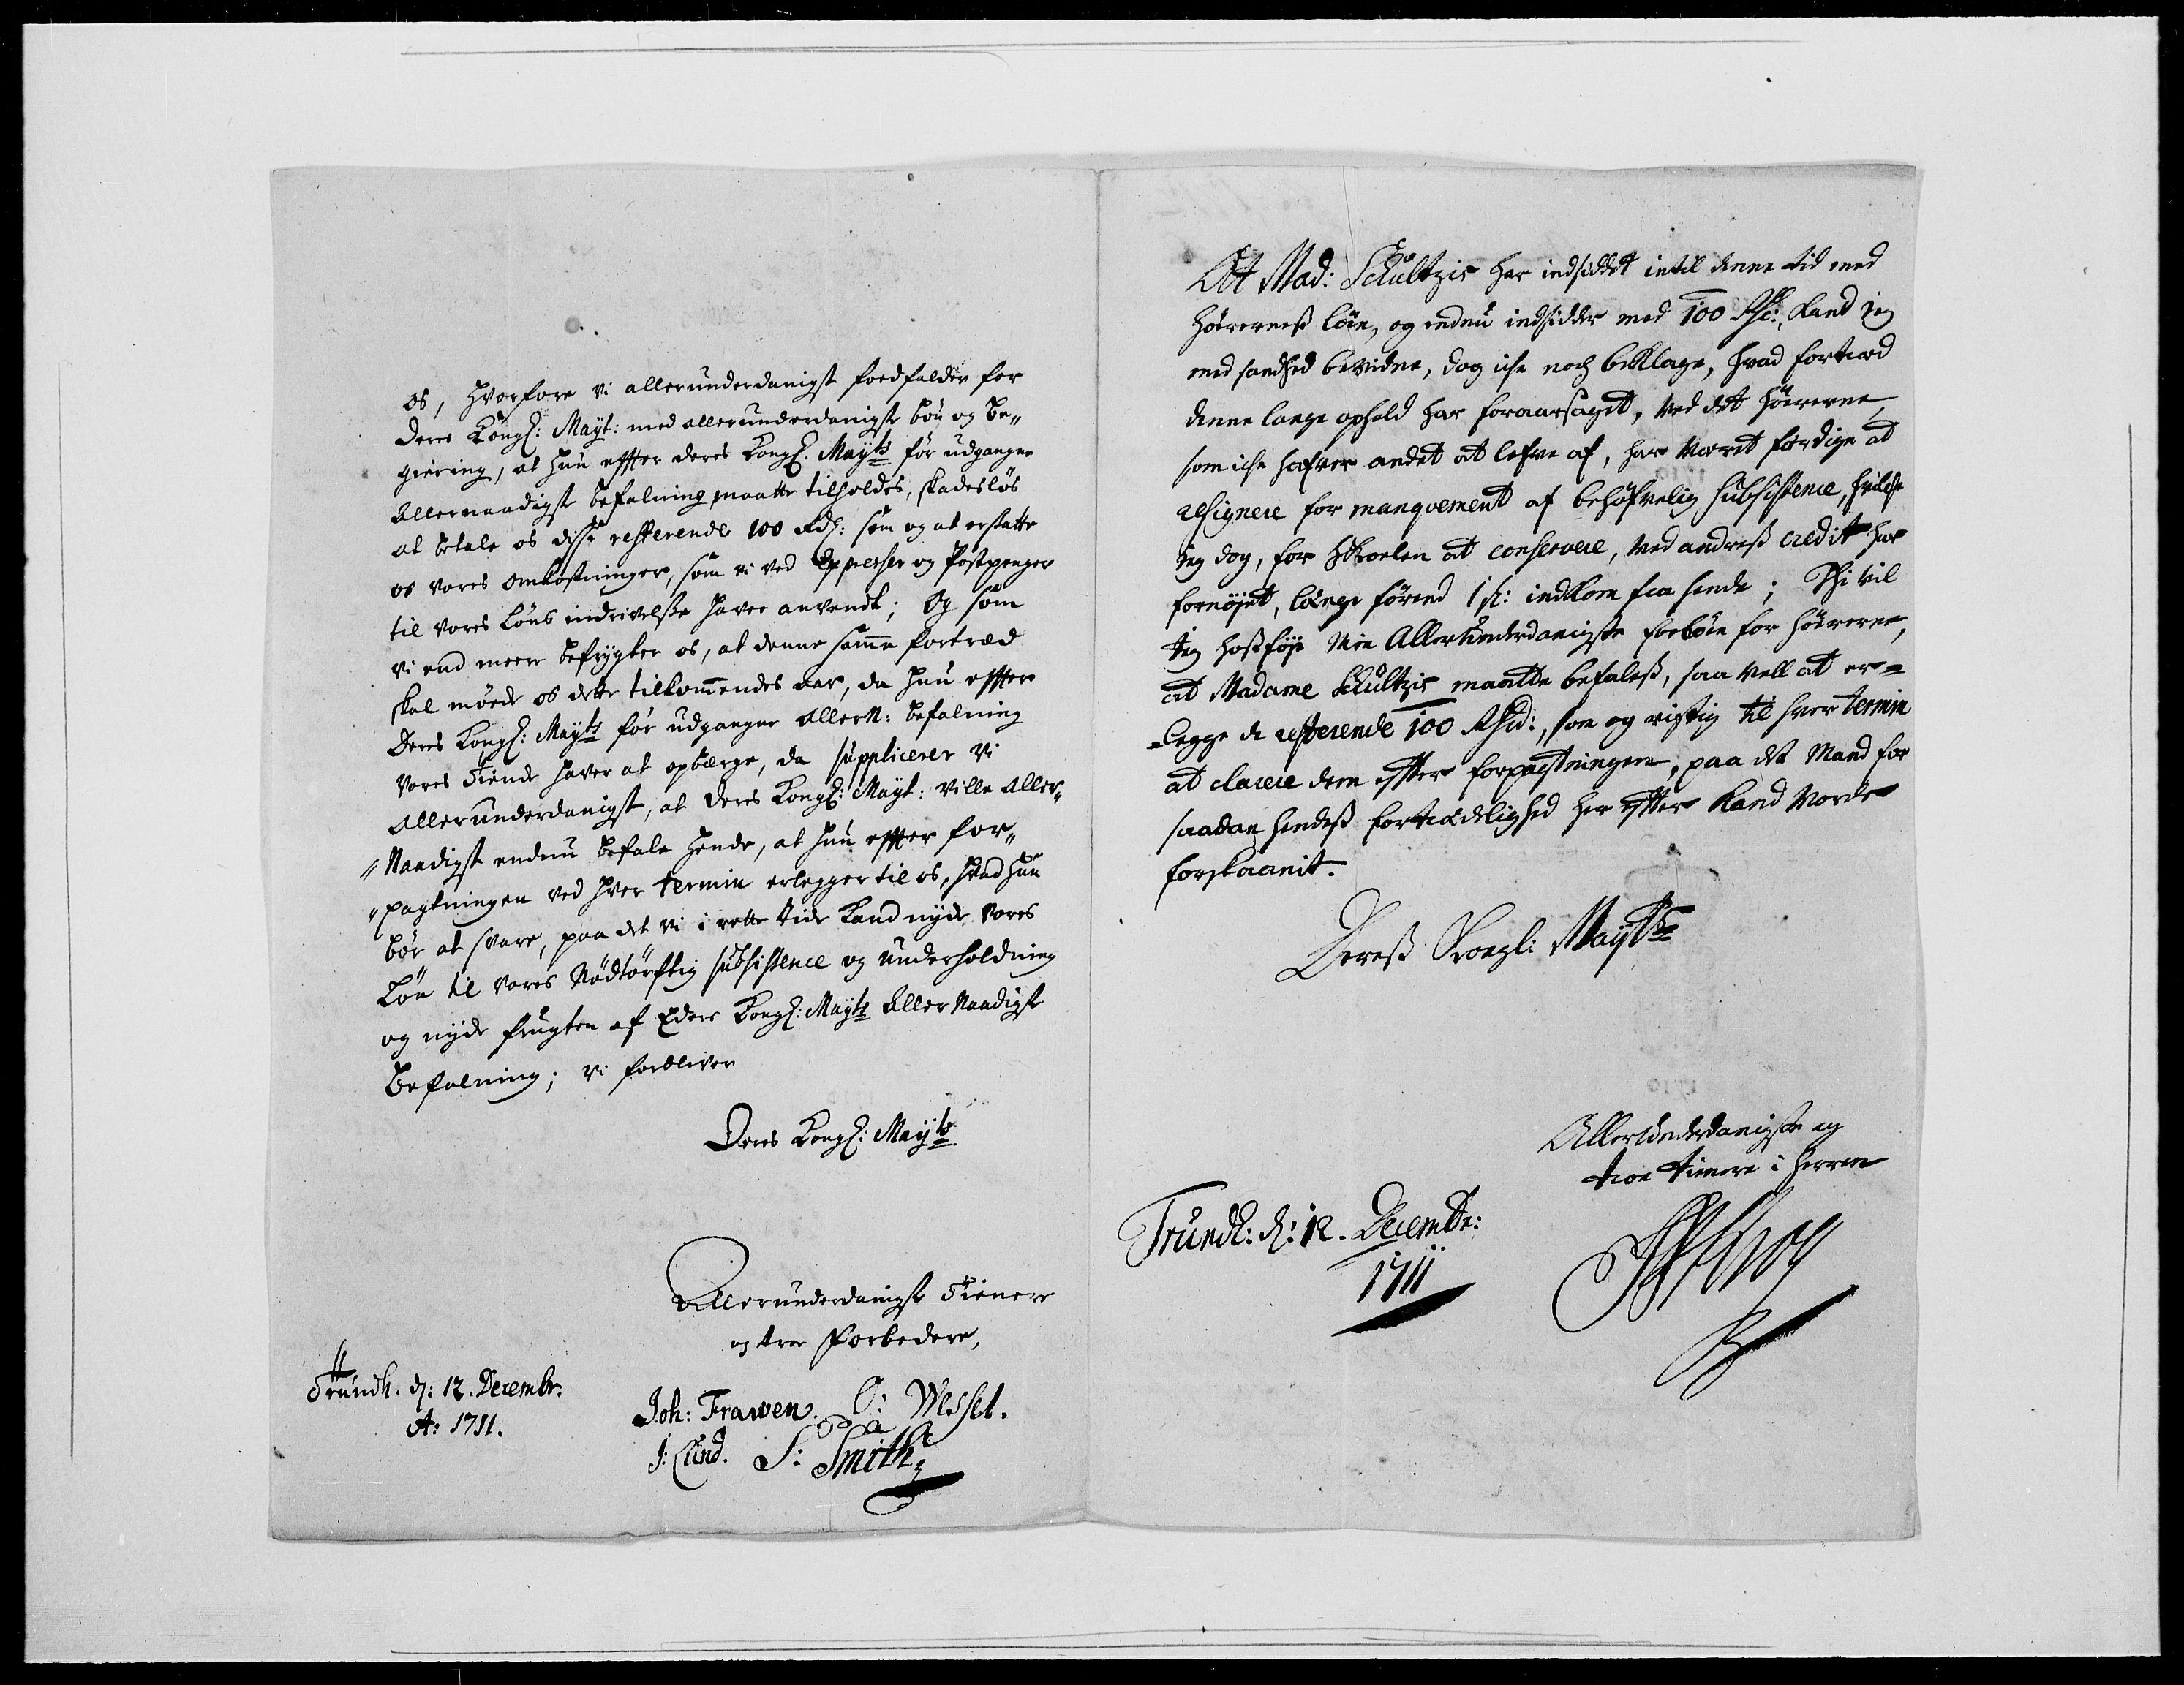 os, hvorfore vi allerunderdanigst foedfalder for
Deres Kongl: Mayt: med allerunderdanigst bön og be„
giering, at hun effter deres Kongl. Mayts för udgangne
Allernaadigst befalning maatte tilholdes, skadeslös
at betale os disse resterende 100 Rdl: som og at erstatte
os vores omkostninger, som vi ved Expresser og Postpenger
til vores Löns indrivelsse haver anvendt; Og som
vi end meere befrygter os, at denne samme fortræd
skal möede os dette tilkommendes aar, da hun effter
Deres Kongl: Mayts för udgangne AllerN: befalning
vores Tiende haver at opbærge, da supplicerer vi
Allerunderdanigst, at deres Kongl: Mayt: ville Aller„
„Naadigst endnu befale hende, at hun effter for„
„pagtningen ved hver termin erlegger til os, hvad hun
bör at svare, paa det vi i rette Tide kand nyde vores
Lön til vores Nödtörftig subsistence og underholdning
og nyde frugten af Eders Kongl: Mayts AllerNaadigst
Befalning; vi forbliver
Deres Kongl: Mayts
Allerunderdanigst Tienere
og troe Forbedere,
Trundh. d: 12. Decembr.
A: 1711.
Joh: Frawen. O: Wessel.
J: Lund. S: Smith
At Mad: Schultzis har indsiddet intil denne tid med
Hörerneß lön, og endnu indsidder med 100 Rd:, kand jeg
med sandhed bevidne, dog iche noch beklage, hvad fortræd
denne lange ophold har foraarsaget, ved det Hörerne,
som iche hafver andet at lefve af, har værit færdige at
resignere for manqvement af behöfvelig subsistence, hvilche
jeg dog, for Skoelen at conservere, ved andreß credit har
fornöjet, længe förend 1 ß: indkom fra hende; Thi vil
jeg hosföje min Allerunderdanigste forbön for Hörerne,
at Madame Schultzis maatte befaleß, saa vell at er=
=legge de resterende 100 Rd:, som og rigtig til hver termin
at clarere dem effter forpagtningen, paa det Mand for
saadan hendeß fortrædelighed her effter kand vorde
forskaanit.
Dereß Kongl: Mayts
Allerunderdanigste og
troe tienere i Herren
Trundh: d: 12. Decembr:
1711